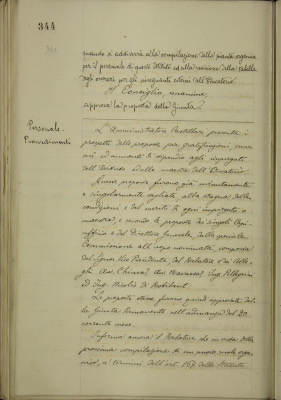 344
quando si addiverrà alla compilazione della pianta organica
per il personale di questo Istituto ed alla revisione della tabella
agli onorari per gli insegnanti esterni del
Il Consiglio, unanime,
approva la proposta della Giunta.
Personale.
Provvedimenti
L'Amministratore Castellari presenta i
progetti delle proposte per gratificazioni annua
li ed aumenti di stipendio agli impiegati
dell'Istituto e alle maestre dell'
Queste proposte furono già minutamente
e singolarmente vagliate, alla stregua delle
condizioni e del merito di ogni impiegato o
maestra, e secondo le proposte dei singoli Capi
ufficio e del Direttore Generale, dalla speciale
Commissione all'uopo nominata, composta
del Signor Vice Presidente, del Relatore e dei Colle
ghi Avv. Avv. Ing. Pellegrini
ed Ing. Nicolis di Robilant.
Le proposte stesse furono quindi approvate dal
la Giunta Permanente nell'adunanza del 20
corrente mese.
Informa ancora il Relatore che in vista della
prossima compilazione di un nuovo ruolo orga
nico, a termini dell'art. 167 dello Statuto